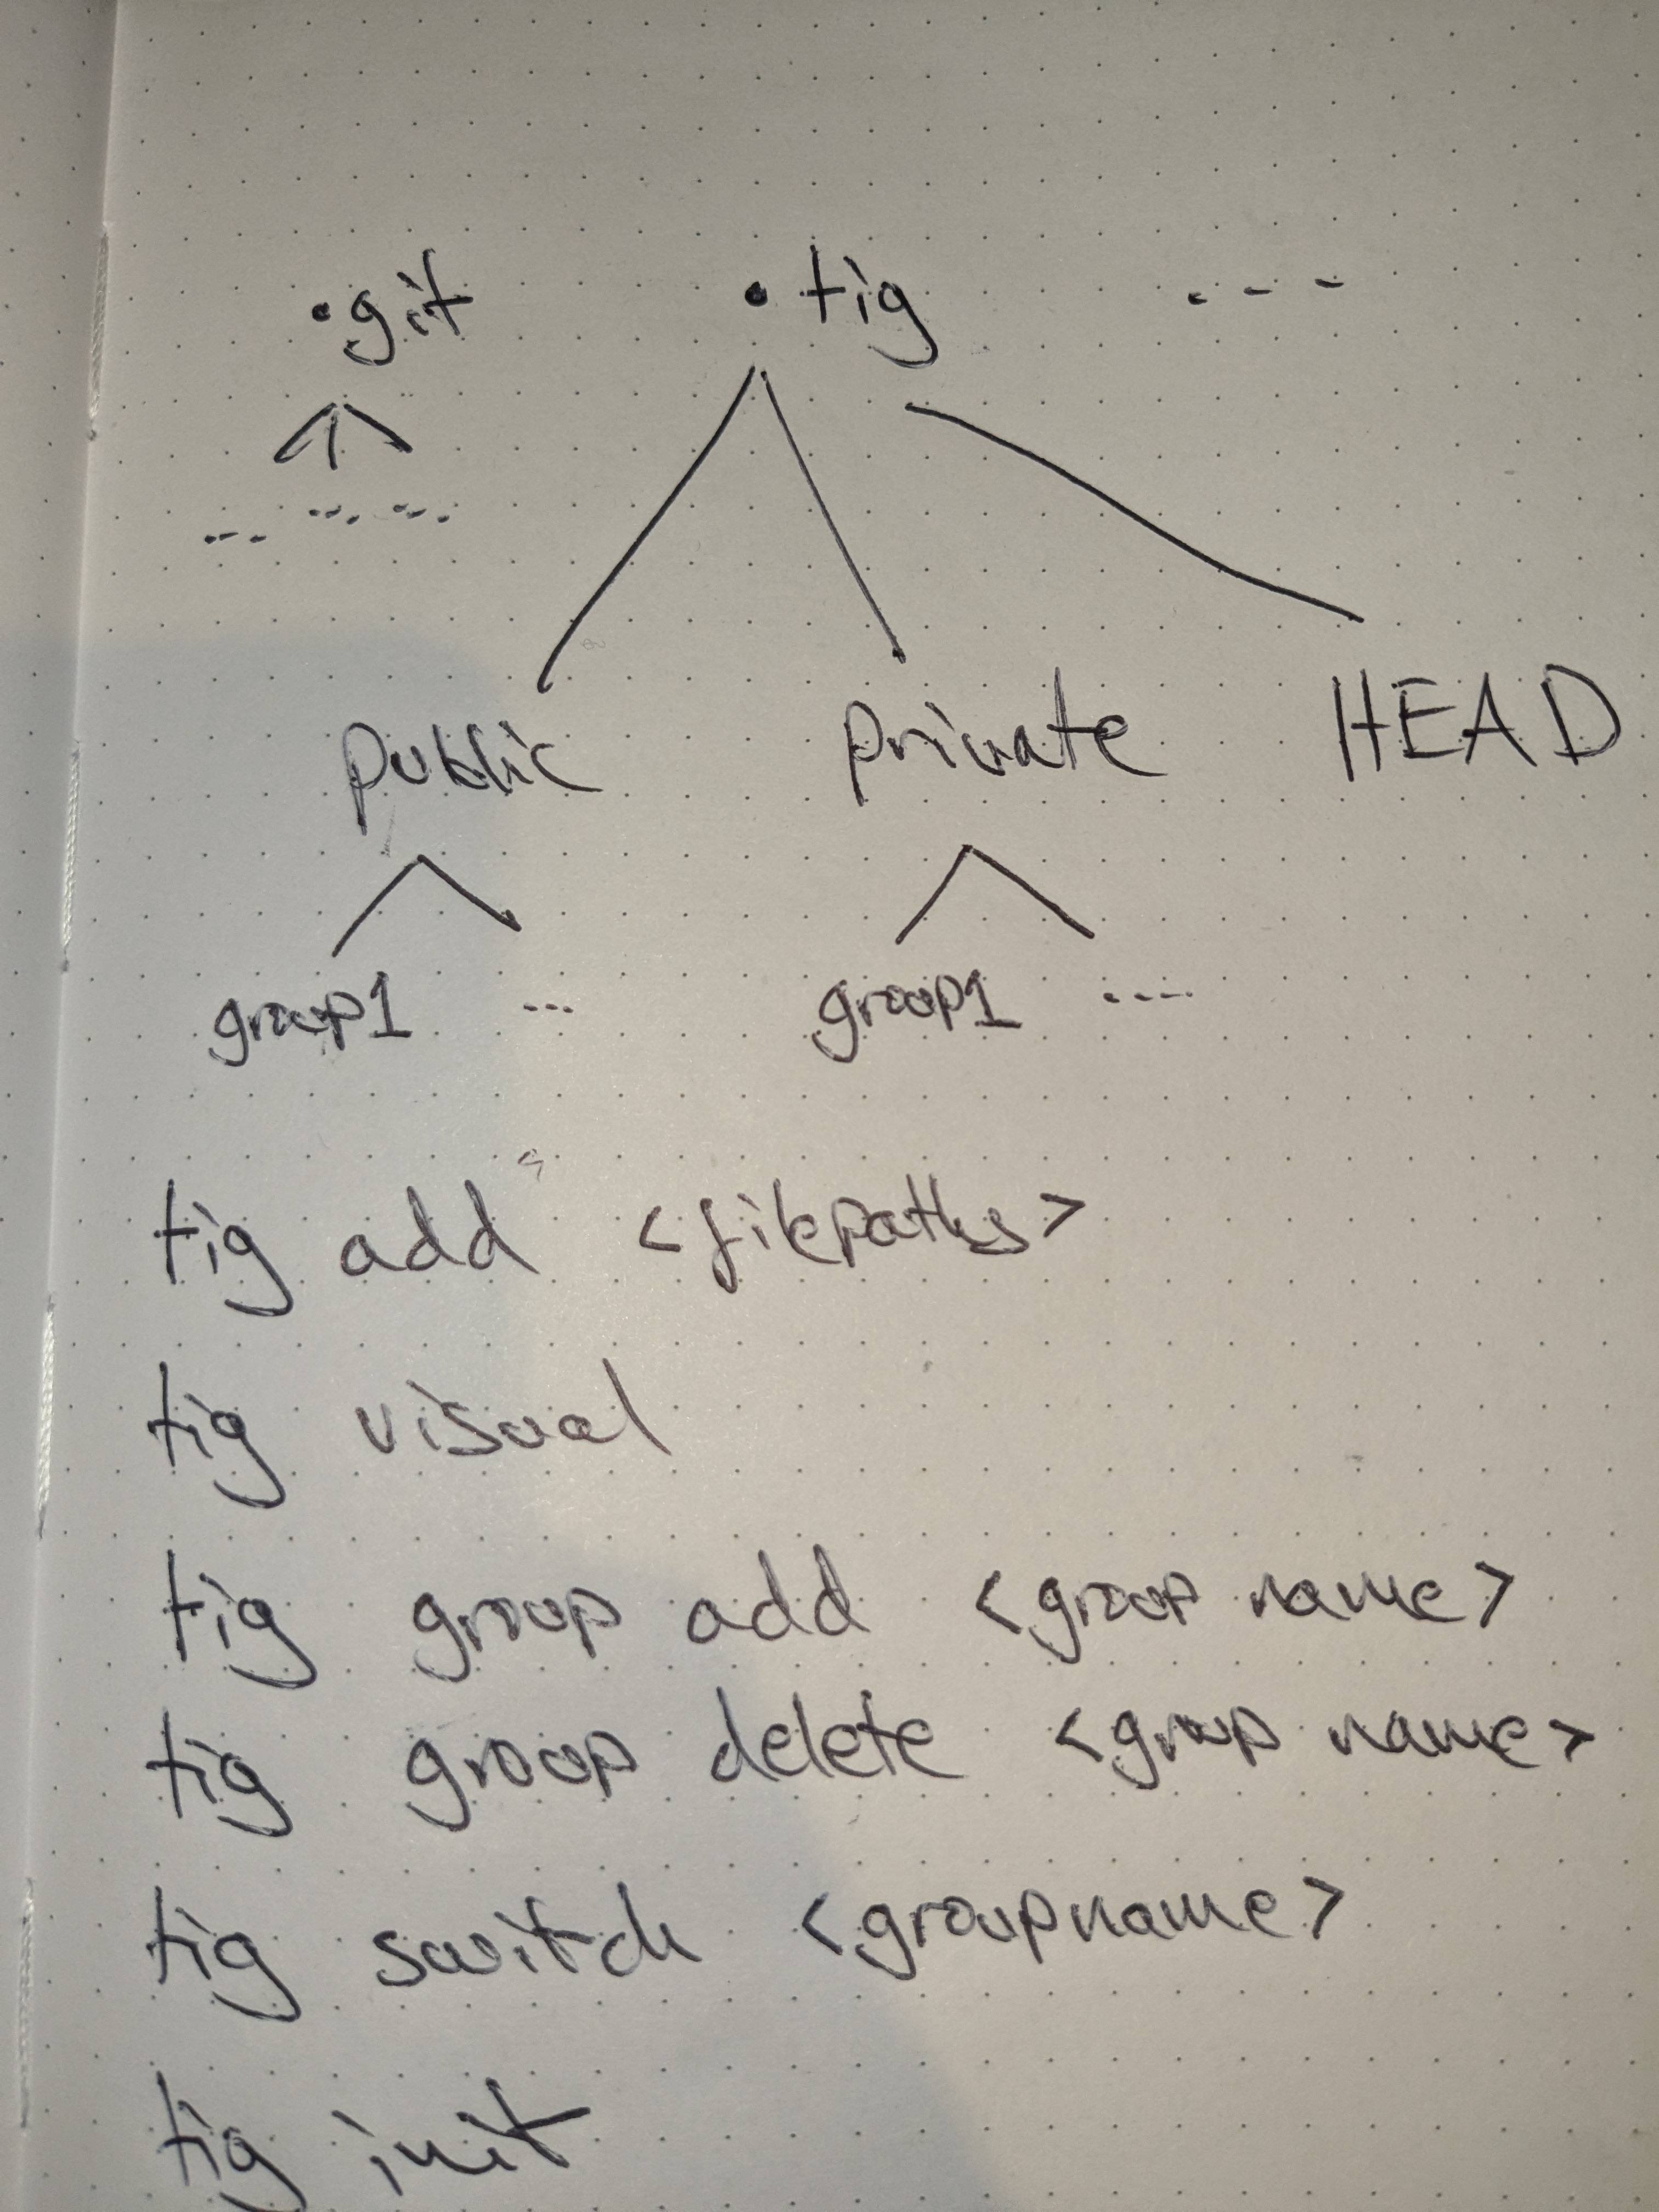 .git .tig ...
... ... ...
public private HEAD
group1 ... group1 ....
tig add <filepaths>
tig visual
tig group add <group name>
tig group delete <group name>
tig switch <groupname>
tig init